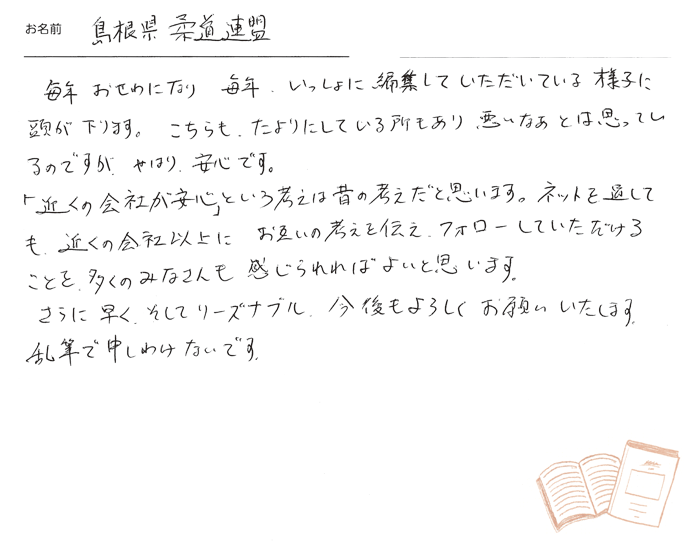 お名前 島根県 柔道連盟
毎年 おせわになり 毎年、いっしょに 編集していただいている 様子に
頭が 下ります。 こちらも、たよりにしている所もあり 悪いなあ とは思ってい
るのですが、やはり、安心です。
「近くの会社が安心」という考えは昔の考えだと思います。ネットを通して
も、近くの会社以上に お互いの考えを伝え、フォローしていただける
ことを、多くのみなさんも 感じられればよいと思います。
さらに早く、そしてリーズナブル、今後もよろしくお願いいたします。
乱筆で申しわけないです。